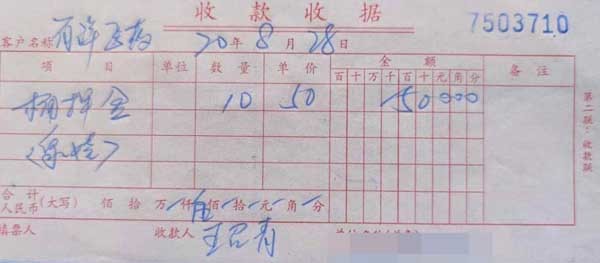 收款收据
7503710
客户名称 20年8月28日
项目 单位 数量 单价 金额 备注
百十万千百十元角分
桶押金 10 50 50000
合计
人民币(大写) 佰拾万仟伍佰拾元角分
填票人 收款人
第二联：收款联